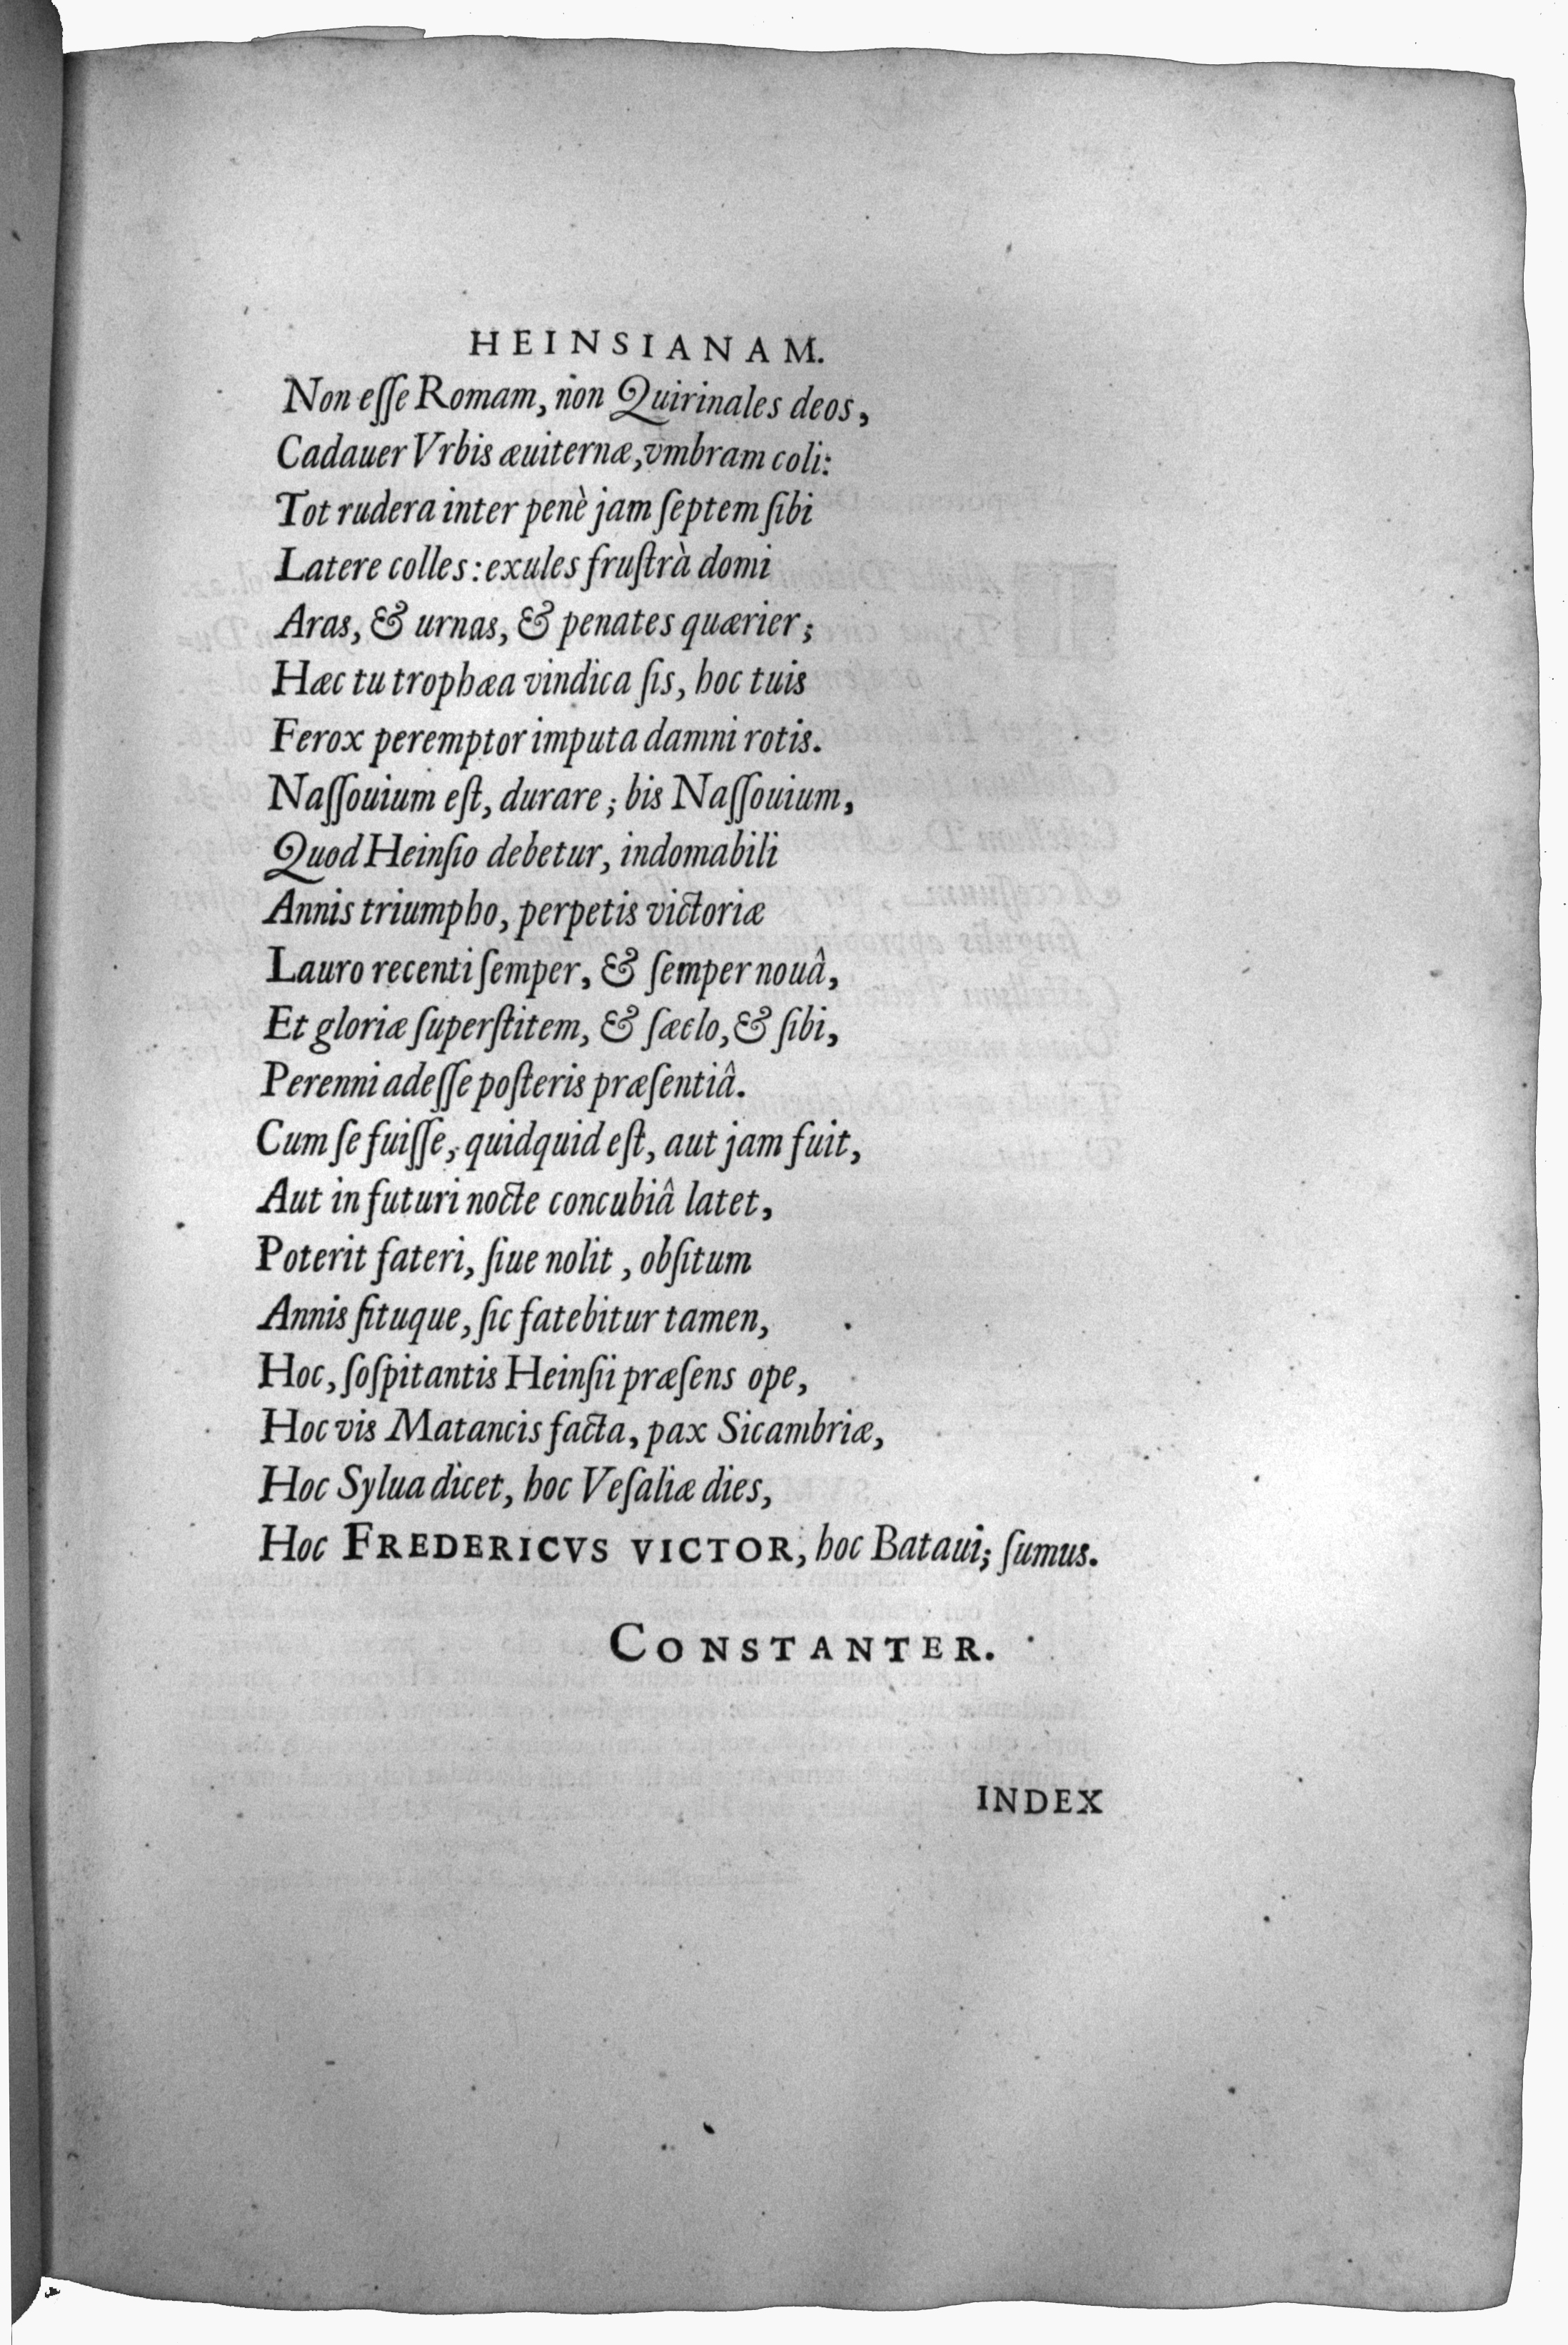 HEINSIANAM.
Non eſſe Romam, non Quirinales deos,
Cadauer Vrbis æuiternæ, vmbram coli:
Tot rudera inter penè jam ſeptem ſibi
Latere colles: exules fruſtrà domi
Aras, & urnas, & penates quærier;
Hæc tu trophæa vindica ſis, hoc tuis
Ferox peremptor imputa damni rotis.
Naſſouium eſt, durare; bis Naſſouium,
Quod Heinſio debetur, indomabili
Annis triumpho, perpetis victoriæ
Lauro recenti ſemper, & ſemper nouâ,
Et gloriæ ſuperſtitem, & ſæclo, & ſibi,
Perenni adeſſe poſteris præſentiâ.
Cum ſe fuiſſe, quidquid eſt, aut jam fuit,
Aut in futuri nocte concubiâ latet,
Poterit fateri, ſiue nolit, obſitum
Annis ſituque, ſic fatebitur tamen,
Hoc, ſoſpitantis Heinſii præſens ope,
Hoc vis Matancis facta, pax Sicambriæ,
Hoc Sylua dicet, hoc Veſaliæ dies,
Hoc FREDERICVS VICTOR, hoc Bataui; ſumus.
CONSTANTER.
INDEX